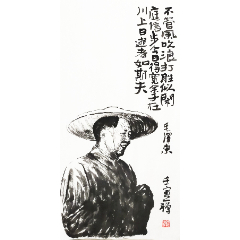 不管風吹浪打胜似閑
庭信步今日得寬余子在
川上曰逝者如斯夫
毛澤東
壬寅